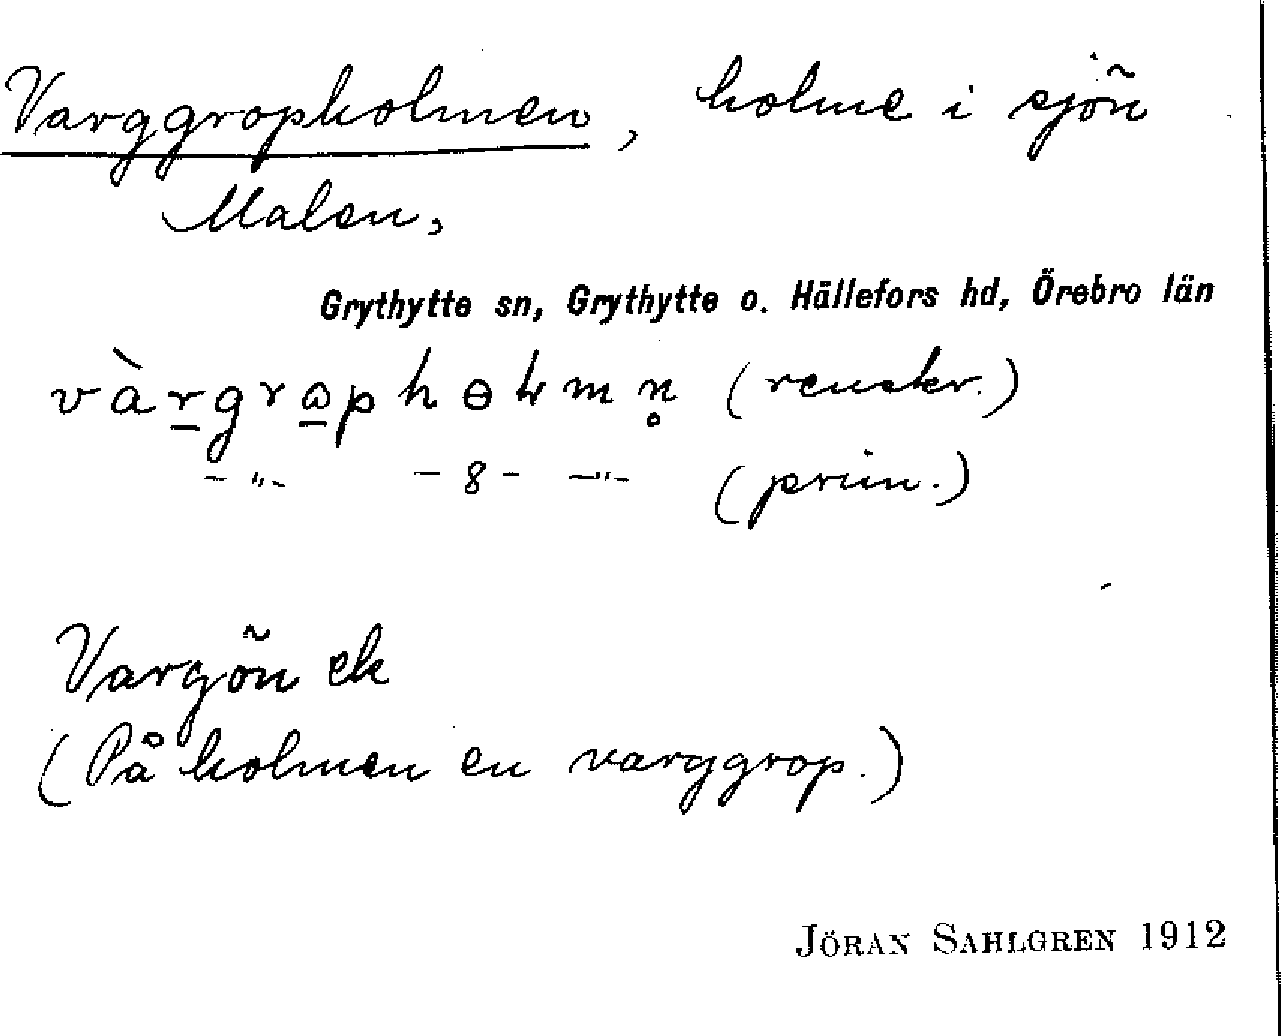 Varggropholmen, holme i sjön
Malen,
Grythytte sn, Grythytte o. Hällefors hd, Örebro län
vàrgrɷp hɵɫmn̥ (renskr.)
-"- -8- -"- (prim.)
Vargön ek
(På holmen en varggrop.)
JÖRAN SAHLGREN 1912